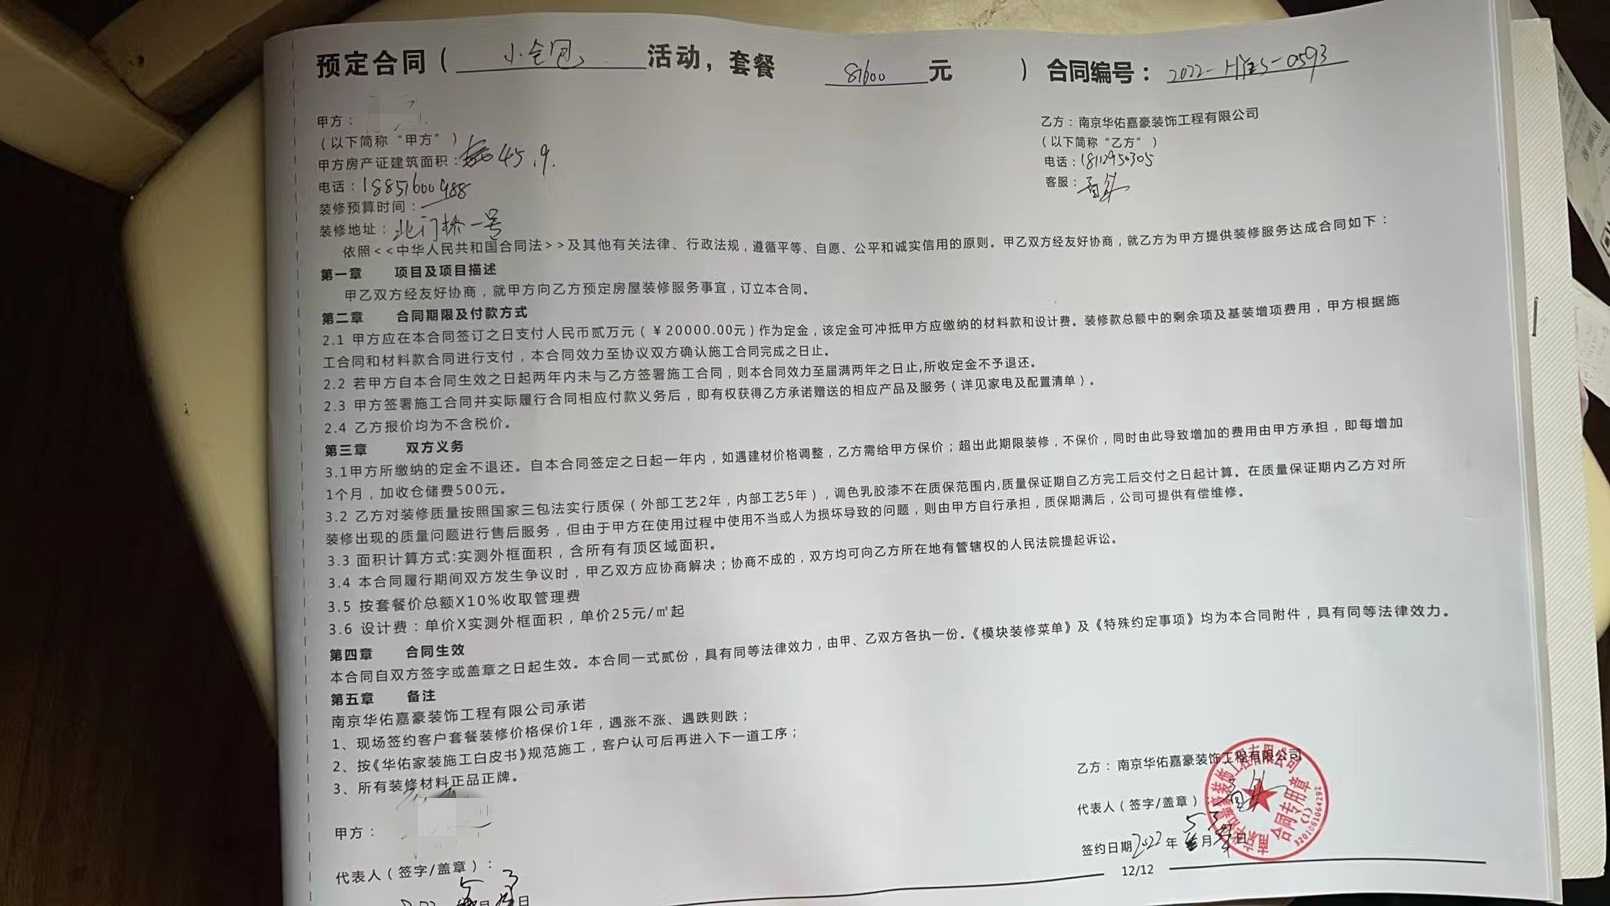 预定合同（ 小全包 活动，套餐 81600 元 ）合同编号：2022-
甲方：
（以下简称“甲方”）
甲方房产证建筑面积：45.9.
电话：18851600988
装修预算时间：
装修地址：北门桥一号
乙方：南京华佑嘉豪装饰工程有限公司
（以下简称“乙方”）
电话：18112950305
客服：
依照<<中华人民共和国合同法>>及其他有关法律、行政法规，遵循平等、自愿、公平和诚实信用的原则。甲乙双方经友好协商，就乙方为甲方提供装修服务达成合同如下：
第一章 项目及项目描述
甲乙双方经友好协商，就甲方向乙方预定房屋装修服务事宜，订立本合同。
第二章 合同期限及付款方式
2.1 甲方应在本合同签订之日支付人民币贰万元（￥20000.00元）作为定金，该定金可冲抵甲方应缴纳的材料款和设计费。装修款总额中的剩余项及基装增项费用，甲方根据施
工合同和材料款合同进行支付，本合同效力至协议双方确认施工合同完成之日止。
2.2 若甲方自本合同生效之日起两年内未与乙方签署施工合同，则本合同效力至届满两年之日止,所收定金不予退还。
2.3 甲方签署施工合同并实际履行合同相应付款义务后，即有权获得乙方承诺赠送的相应产品及服务（详见家电及配置清单）。
2.4 乙方报价均为不含税价。
第三章 双方义务
3.1甲方所缴纳的定金不退还。自本合同签定之日起一年内，如遇建材价格调整，乙方需给甲方保价；超出此期限装修，不保价，同时由此导致增加的费用由甲方承担，即每增加
1个月，加收仓储费500元。
3.2 乙方对装修质量按照国家三包法实行质保（外部工艺2年，内部工艺5年），调色乳胶漆不在质保范围内,质量保证期自乙方完工后交付之日起计算。在质量保证期内乙方对所
装修出现的质量问题进行售后服务，但由于甲方在使用过程中使用不当或人为损坏导致的问题，则由甲方自行承担，质保期满后，公司可提供有偿维修。
3.3 面积计算方式:实测外框面积，含所有有顶区域面积。
3.4 本合同履行期间双方发生争议时，甲乙双方应协商解决；协商不成的，双方均可向乙方所在地有管辖权的人民法院提起诉讼。
3.5 按套餐价总额X10%收取管理费
3.6 设计费：单价X实测外框面积，单价25元/㎡起
第四章 合同生效
本合同自双方签字或盖章之日起生效。本合同一式贰份，具有同等法律效力，由甲、乙双方各执一份。《模块装修菜单》及《特殊约定事项》均为本合同附件，具有同等法律效力。
第五章 备注
南京华佑嘉豪装饰工程有限公司承诺
1、现场签约客户套餐装修价格保价1年，遇涨不涨、遇跌则跌；
2、按《华佑家装施工白皮书》规范施工，客户认可后再进入下一道工序；
3、所有装修材料正品正牌。
甲方：
代表人（签字/盖章）：
5 3
月 日
乙方：南京华佑嘉豪装饰工程有限公司
代表人（签字/盖章）
签约日期2022年5月3日
南京华佑嘉豪装饰工程有限公司
合同专用章
(1)
12/12